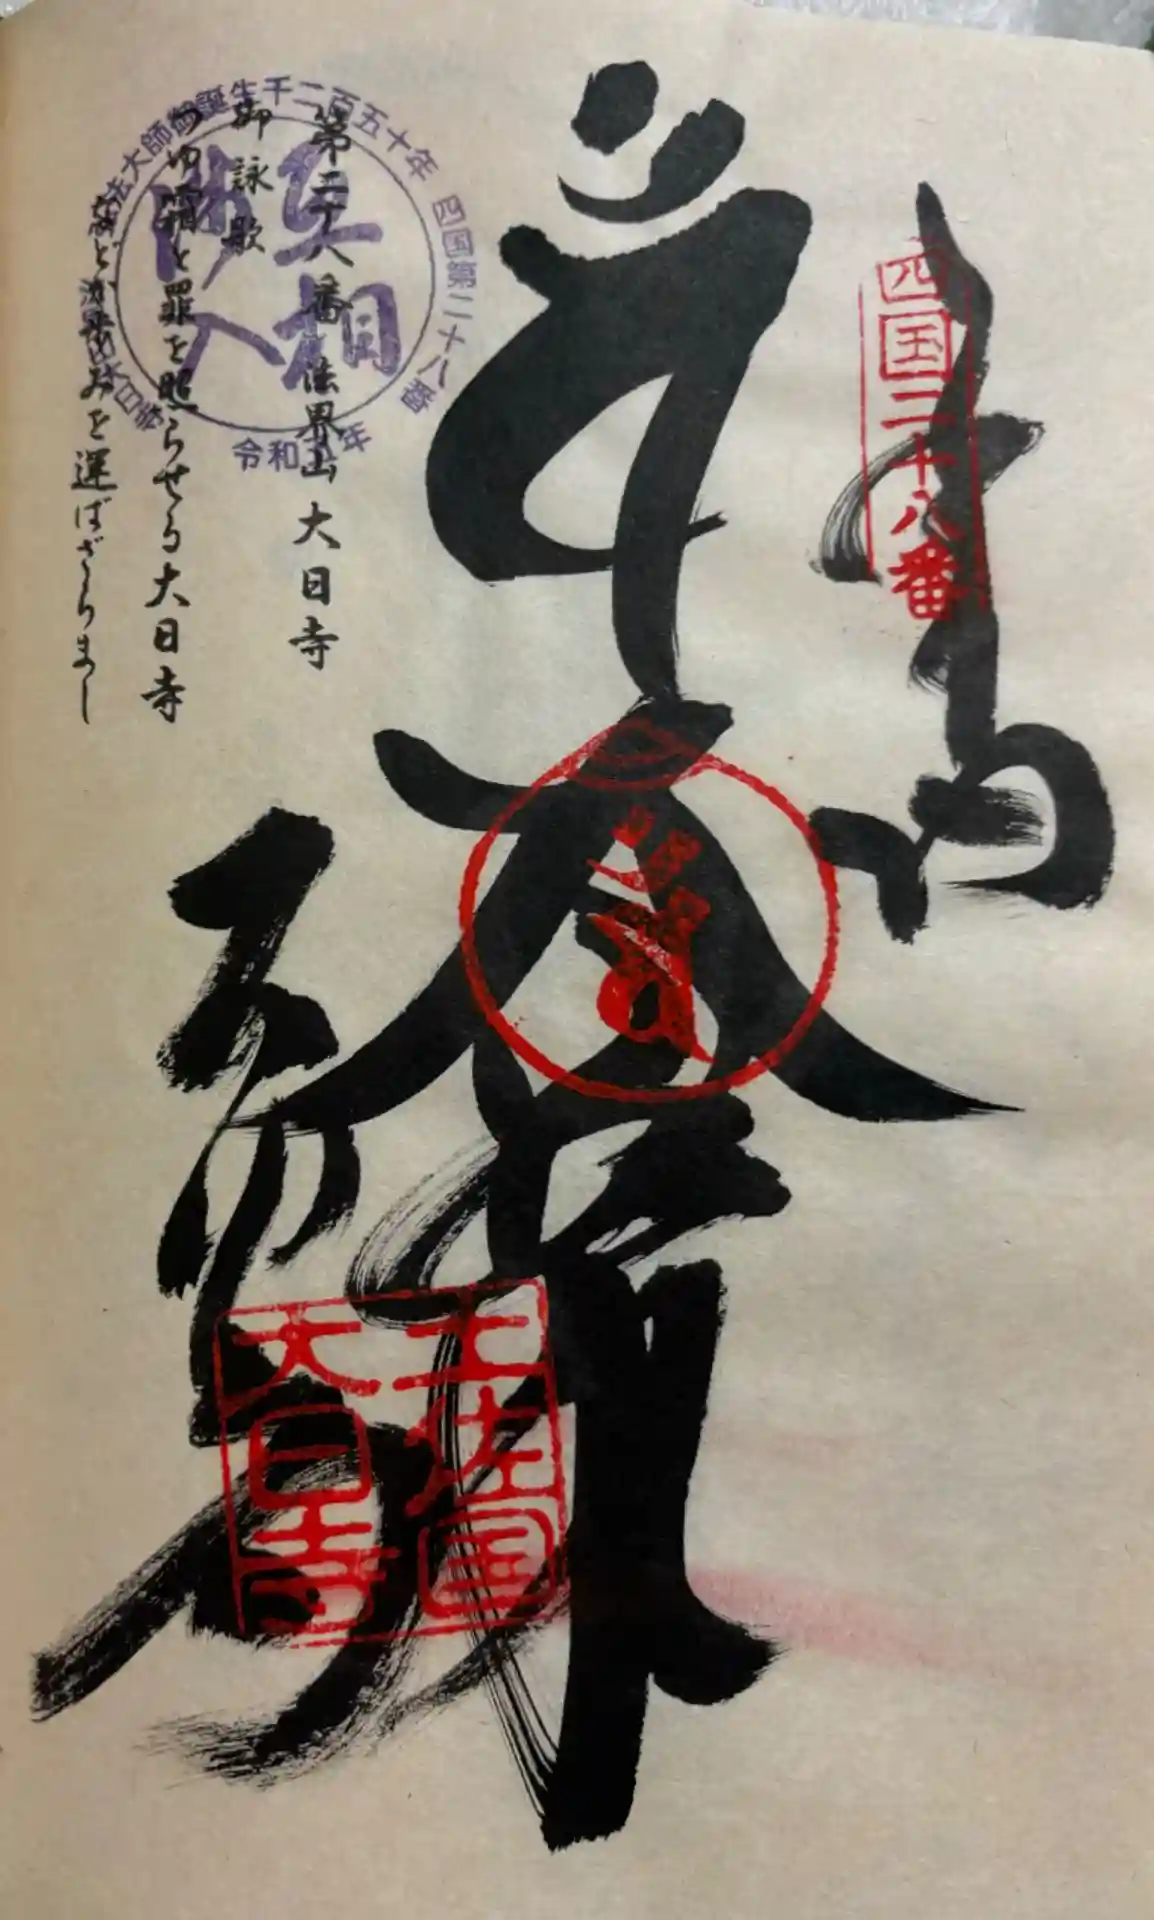 奉納
四国二十八番
大日寺
土佐国
大日寺
第二十八番 法界山 大日寺
御詠歌
つゆ霜と罪を照らせる大日寺
などか歩みを運ばざらまし
弘法大師御誕生千二百五十年 四国第二十八番
令和五年
大日寺